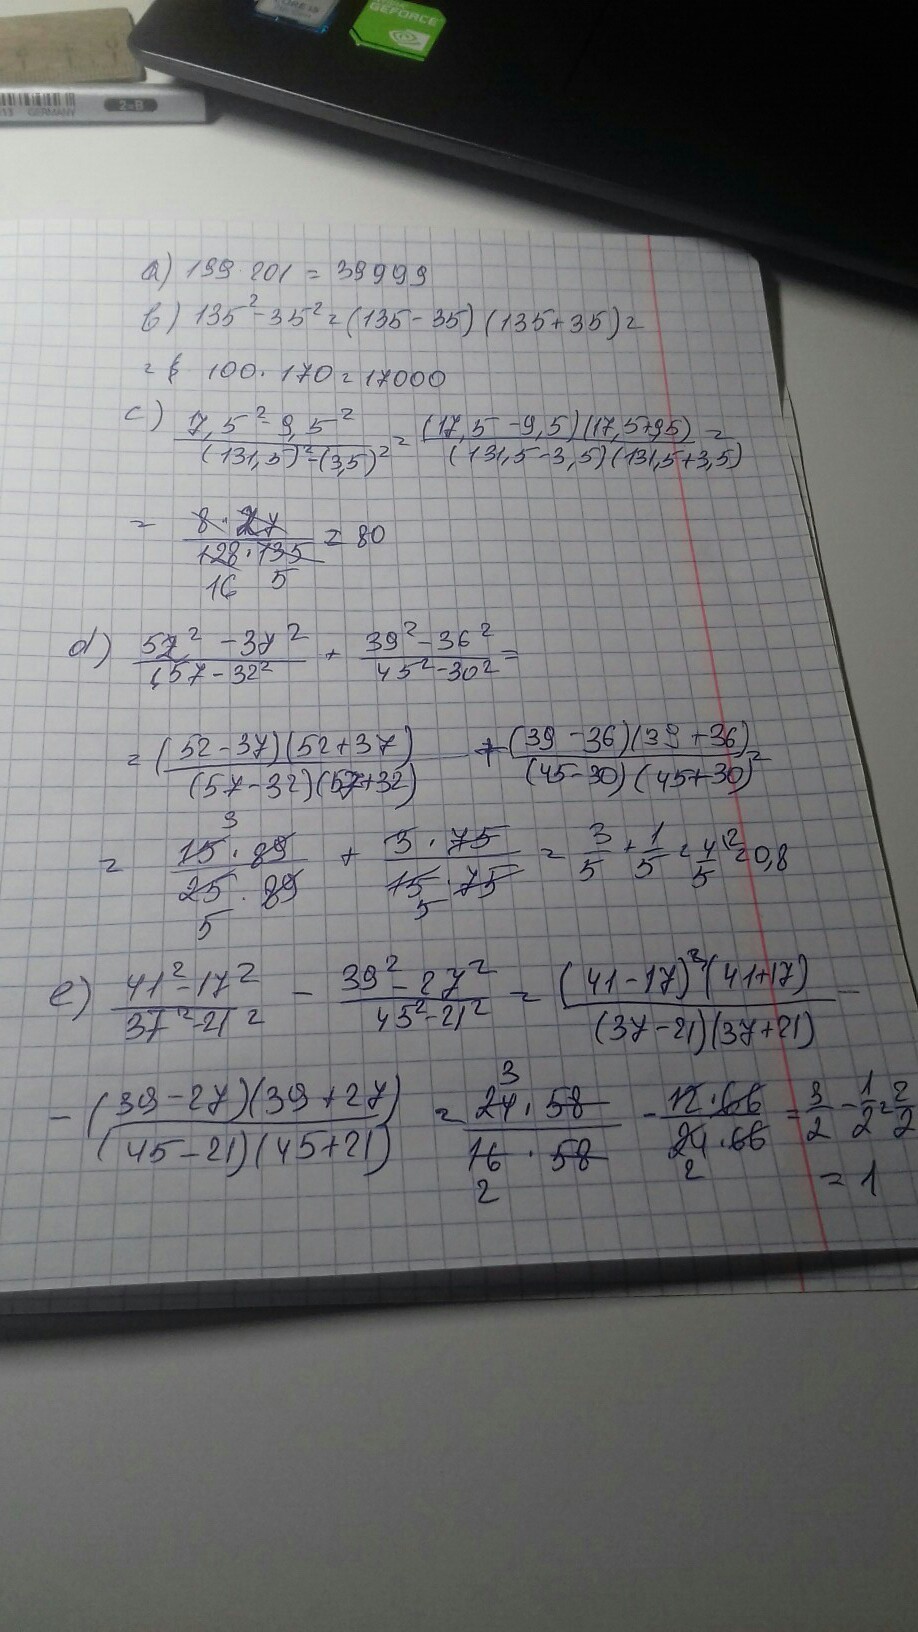 CORE i5
GEFORCE
GERMANY
2=B
a) 199·201 = 39999
b) 135² - 35² = (135 - 35) (135 + 35) =
= 100 · 170 = 17000
c) 7,5² - 9,5² / (131,5)² - (3,5)² = (17,5 - 9,5)(17,5+9,5) / (131,5 - 3,5)(131,5 + 3,5) =
= 8 · 27 / 128 · 135 = 80
16 5
d) 52² - 37² / 57 - 32² + 39² - 36² / 45² - 30² =
= (52 - 37)(52 + 37) / (57 - 32)(57 + 32) + (39 - 36)(39 + 36) / (45 - 30)(45 + 30)²
3
= 15 · 89 / 25 · 89 + 3 · 75 / 15 · 75 = 3/5 + 1/5 = 4/5 = 0,8
5 5
e) 41² - 17² / 37² - 21² - 39² - 27² / 45² - 21² = (41 - 17)(41 + 17) / (37 - 21)(37 + 21) -
- (39 - 27)(39 + 27) / (45 - 21)(45 + 21) = 24 · 58 / 16 · 58 - 12 · 66 / 24 · 66 = 3/2 - 1/2 = 2/2
3
2 2
= 1